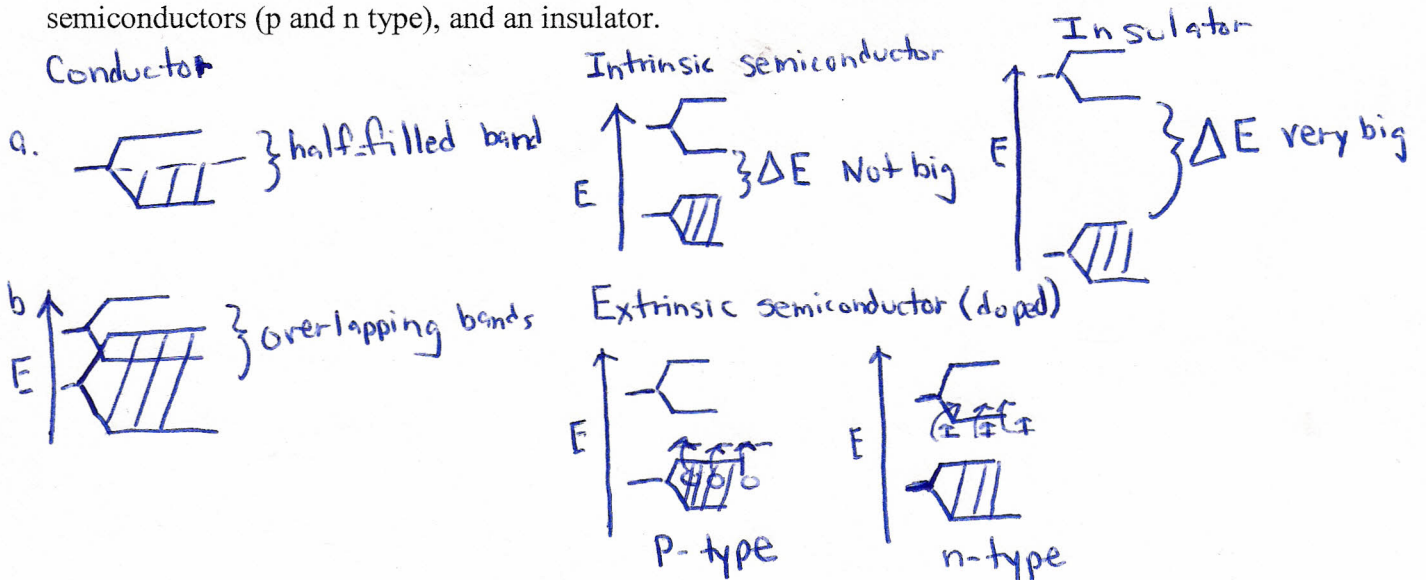 semiconductors (p and n type), and an insulator.
Conductor
a.
half-filled band
b
E
overlapping bands
Intrinsic semiconductor
E
ΔE Not big
Insulator
E
ΔE very big
Extrinsic semiconductor (doped)
E
P-type
E
n-type